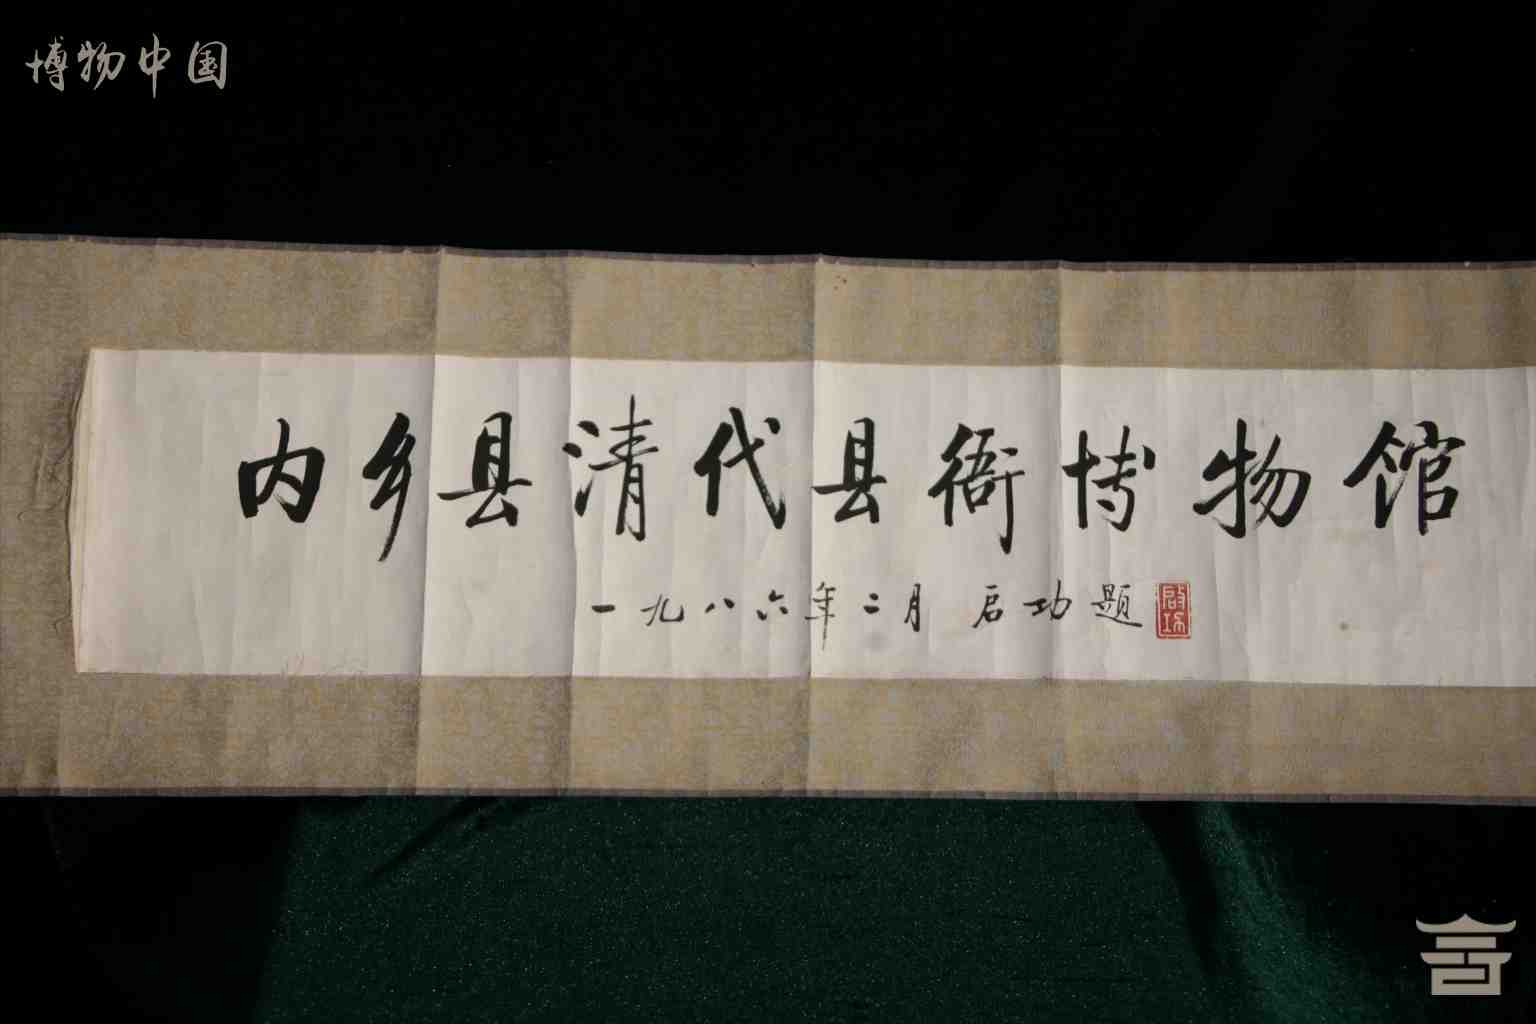 博物中国
内乡县清代县衙博物馆
一九八六年二月 启功题
启功